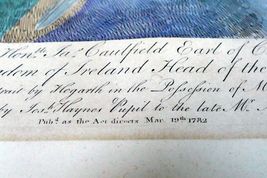 Honble Jas Caulfield Earl of C
dom of Ireland Head of the
trait by Hogarth in the Possession of M
by Josh Haynes Pupil to the late Mr
Pubd as the Act directs Mar. 19th 1782